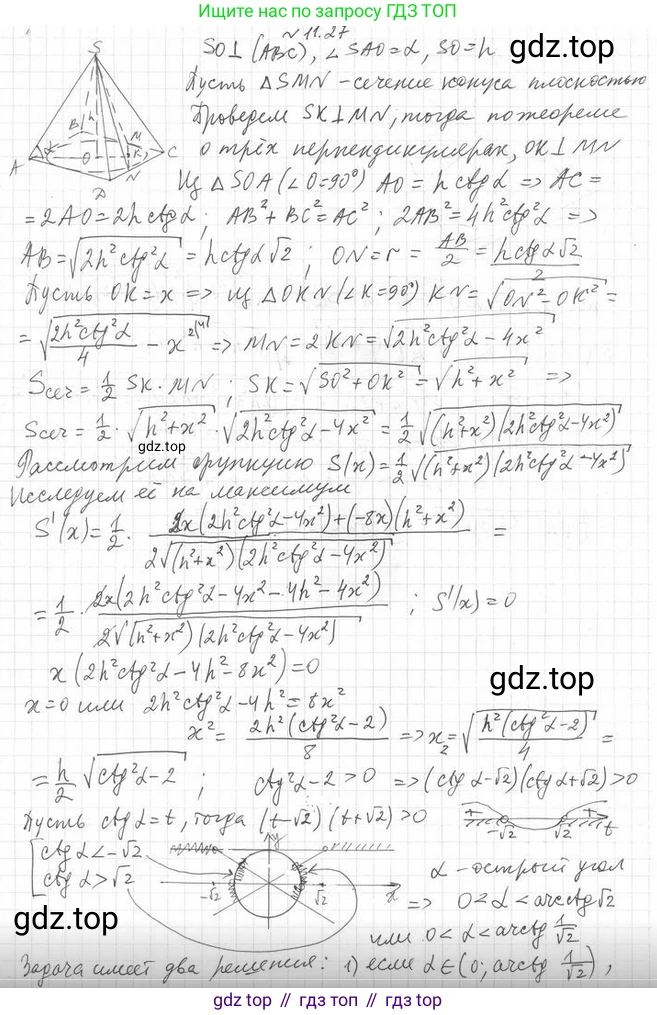 Ищите нас по запросу ГДЗ ТОП
№ 11.27
SO⊥(ABC), ∠SAO=α, SO=h
gdz.top
Пусть △SMN – сечение конуса плоскостью
Проведем SK⊥MN, тогда по теореме
о трёх перпендикулярах, OK⊥MN
Из △SOA (∠O=90°) AO = h ctg α => AC =
= 2AO = 2h ctg α ; AB²+BC²=AC² ; 2AB²=4h²ctg²α =>
AB = √(2h²ctg²α) = h ctg α √2 ; ON = r = AB/2 = h ctg α √2/2
Пусть OK = x => из △OKN (∠K=90°) KN = √(ON²-OK²) =
= √(2h²ctg²α/4 - x²) => MN = 2KN = √(2h²ctg²α - 4x²)
Sсеч = 1/2 SK·MN ; SK = √(SO²+OK²) = √(h²+x²) =>
Sсеч = 1/2 · √(h²+x²) · √(2h²ctg²α-4x²) = 1/2 √((h²+x²)(2h²ctg²α-4x²))
gdz.top
Рассмотрим функцию S(x) = 1/2 √((h²+x²)(2h²ctg²α-4x²))
Исследуем её на максимум
S'(x) = 1/2 · (2x(2h²ctg²α-4x²)+(-8x)(h²+x²))/(2√((h²+x²)(2h²ctg²α-4x²))) =
= 1/2 · (2x(2h²ctg²α-4x²-4h²-4x²))/(2√((h²+x²)(2h²ctg²α-4x²))) ; S'(x)=0
x(2h²ctg²α-4h²-8x²)=0
gdz.top
x=0 или 2h²ctg²α-4h²=8x²
x² = 2h²(ctg²α-2)/8 => x₂ = √(h²(ctg²α-2)/4) =
= h/2 √(ctg²α-2) ; ctg²α-2>0 => (ctg α-√2)(ctg α+√2)>0
Пусть ctg α=t, тогда (t-√2)(t+√2)>0
+ - + -√2 √2 t
[ctg α<-√2
ctg α>√2
y
-√2 √2 x
α - острый угол
=> 0<α<arcctg√2
gdz.top
gdz.top
или 0<α<arctg 1/√2
Задача имеет два решения: 1) если α∈(0; arctg 1/√2),
gdz.top // гдз топ // гдз.top